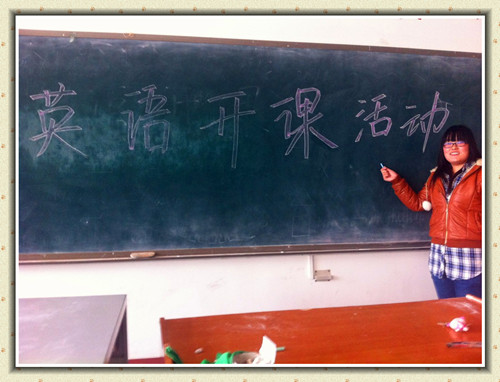 英语开课活动